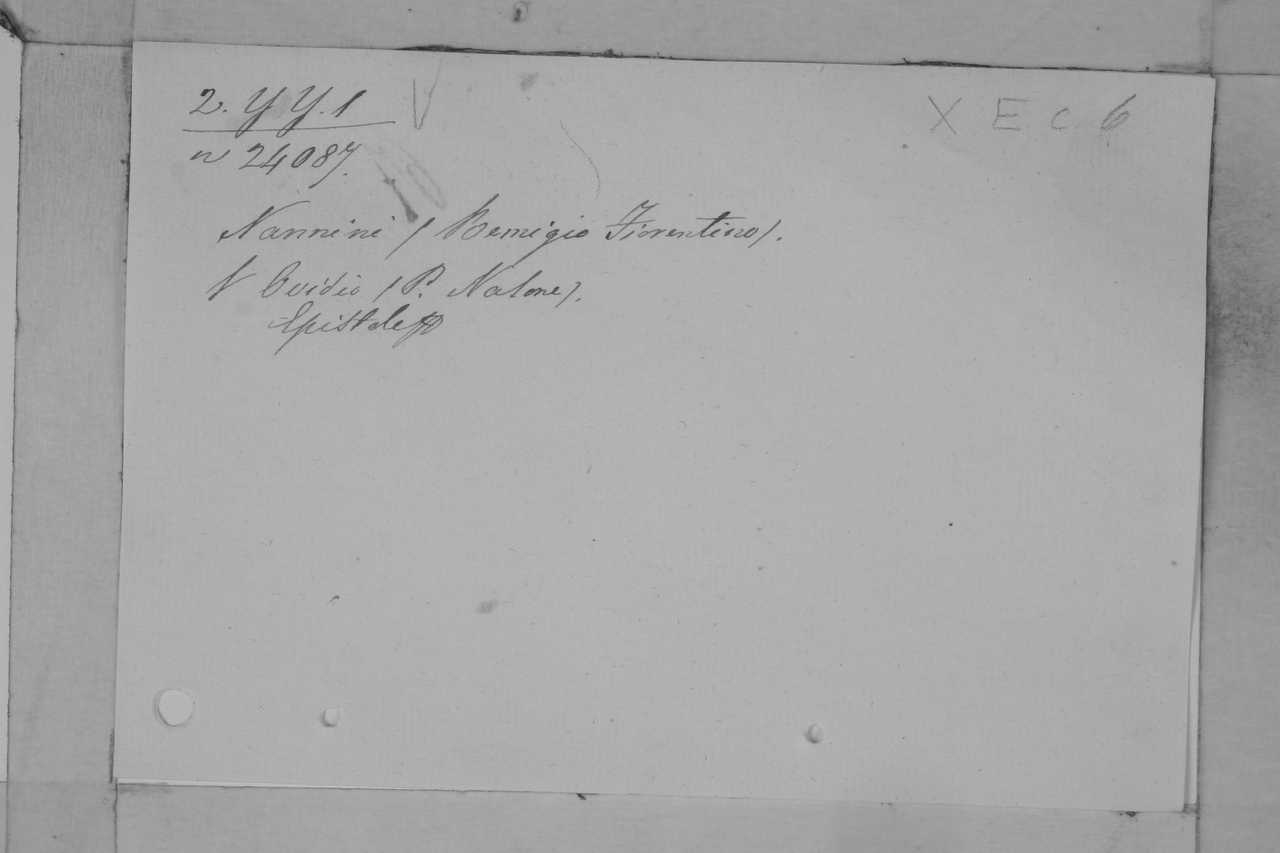 2. Y Y. 1 V
X E c 6
n 24087.
Nannini (Remigio Fiorentino).
V Ovidio (P. Nasone).
Epistole